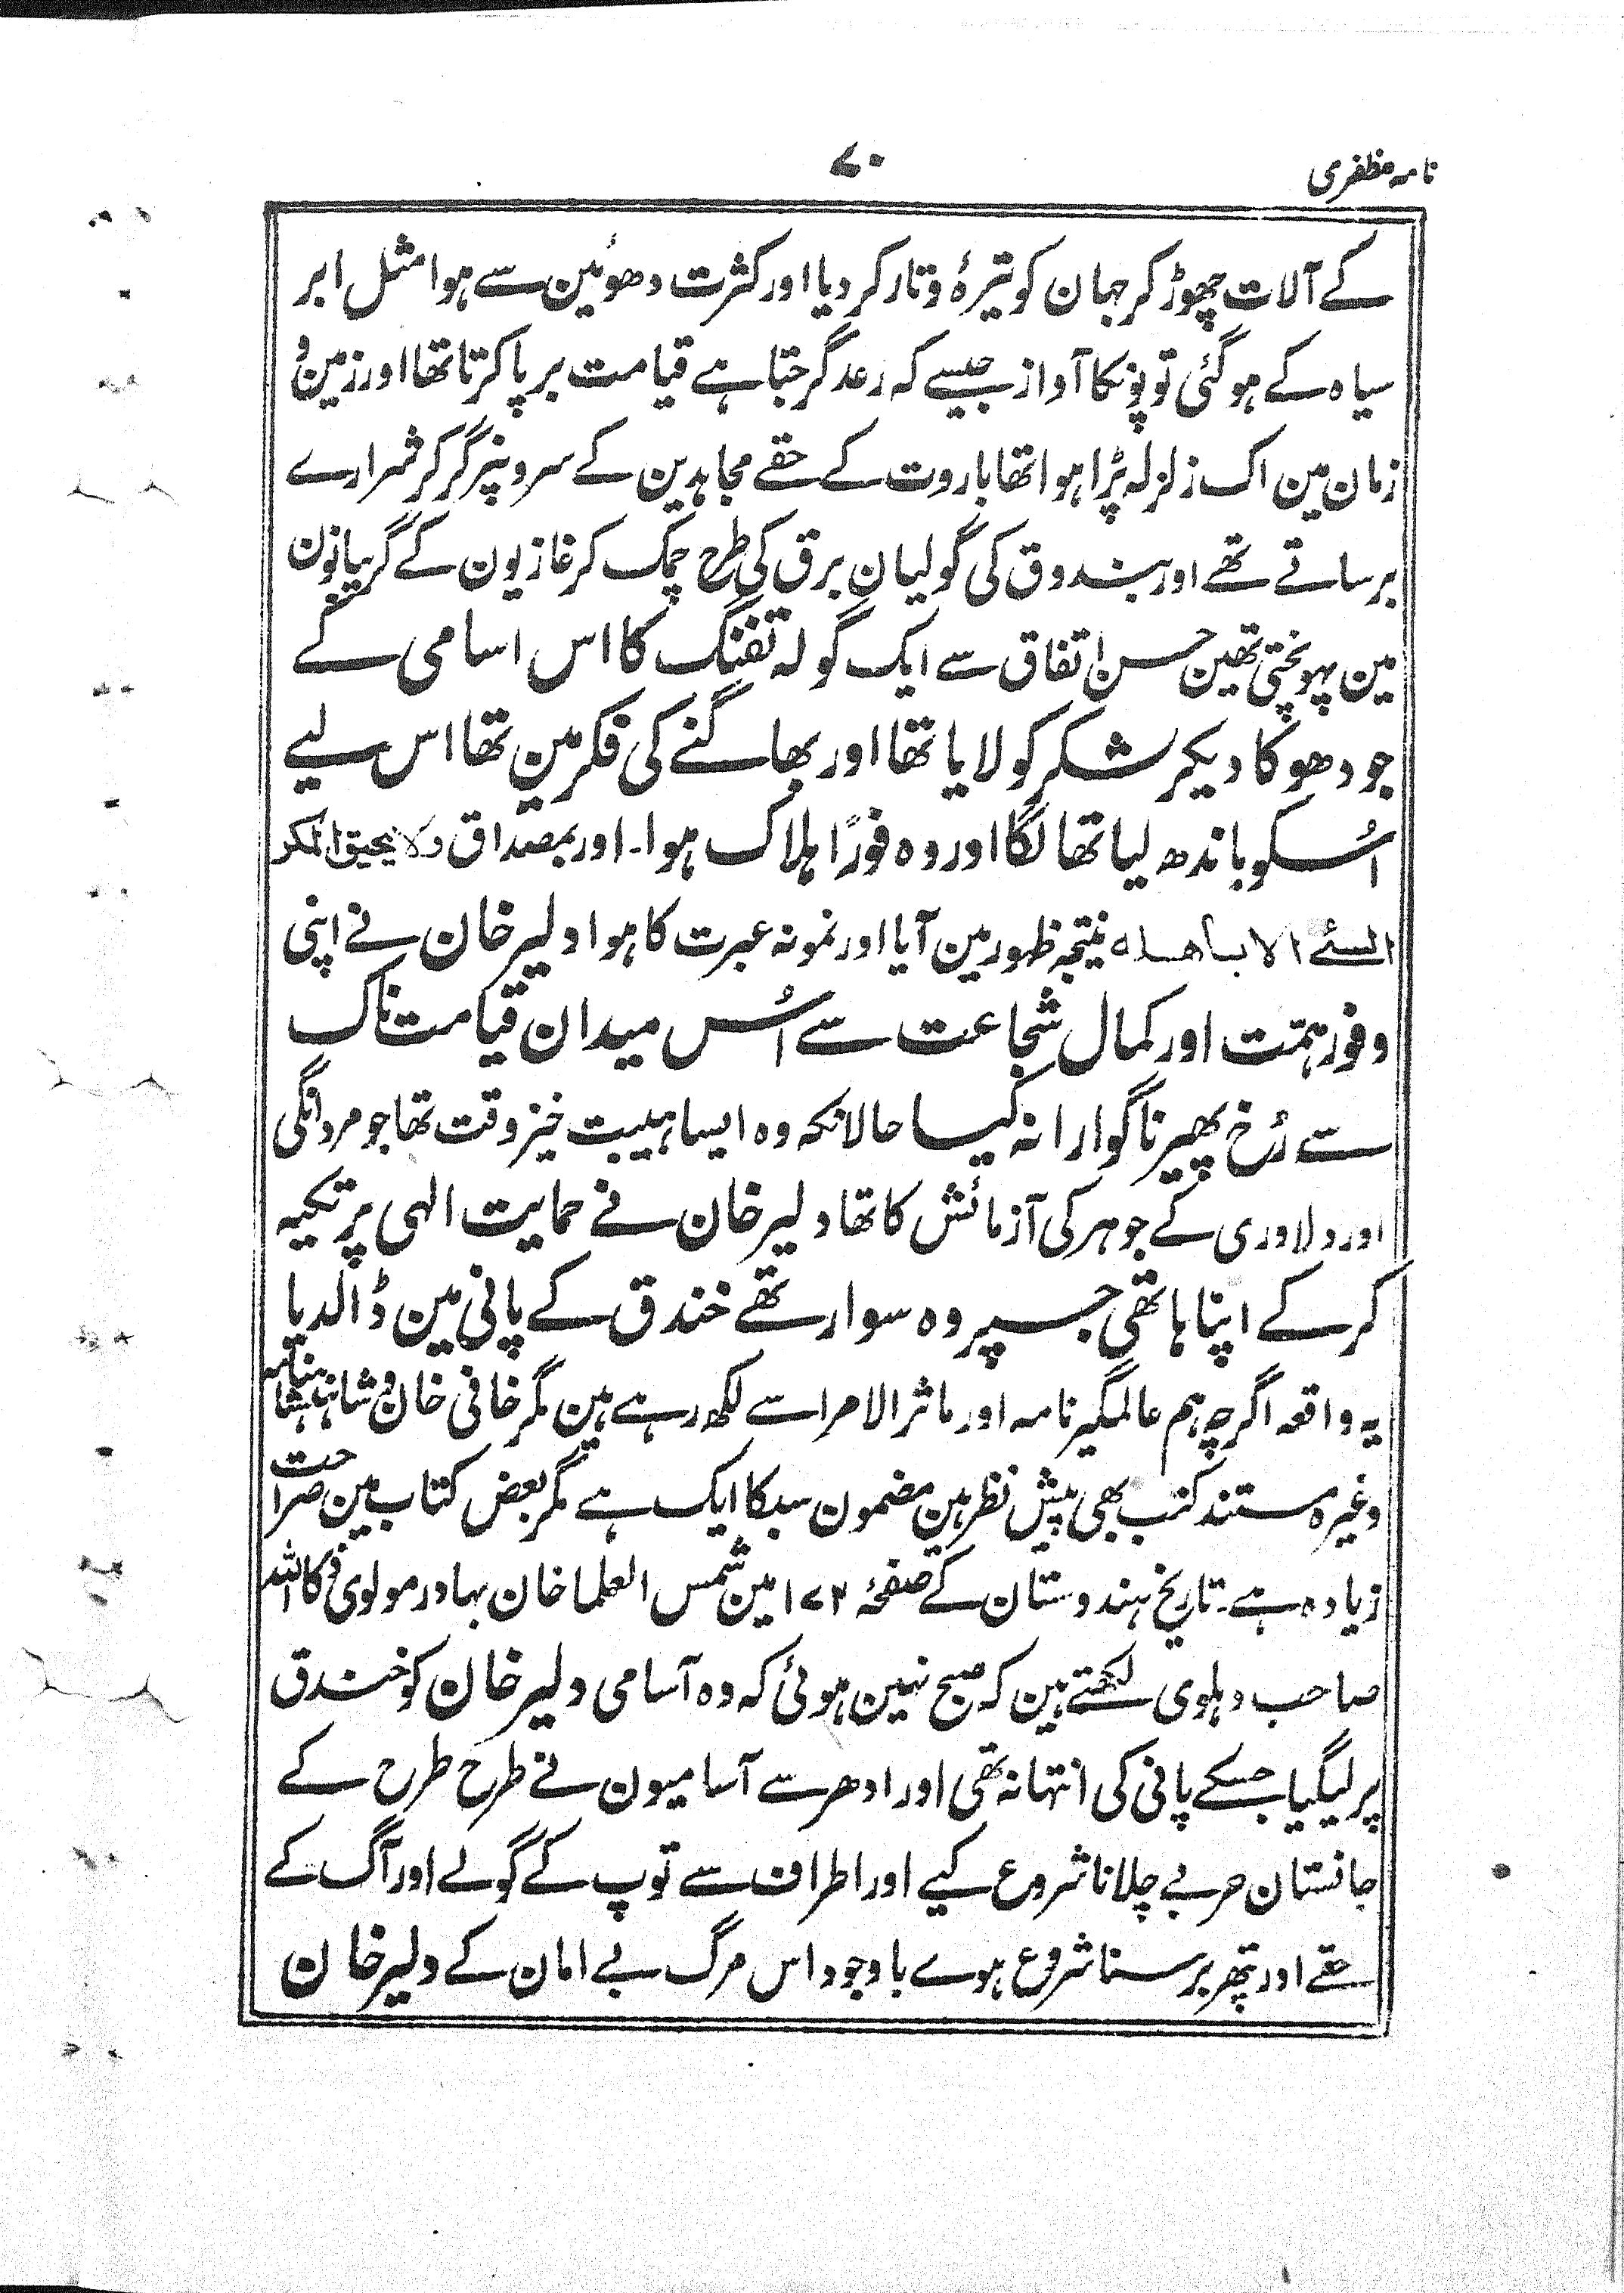 نامہ مظفری
۷۰
کے آلات چھوڑ کر جہان کو تیرہٴ و تار کر دیا اور کثرت دھوئین سے ہوا مثل ابر
سیاہ کے ہو گئی توپونکا آواز جیسے کہ رعد گرجتا ہے قیامت برپا کرتا تھا اور زمین و
زمان مین اک زلزلہ پڑا ہوا تھا باروت کے حقے مجاہدین کے سرونپر گر کر شرارے
برساتے تھے اور بندوق کی گولیان برق کی طرح چمک کر غازیون کے گریبانون
مین پہونچتی تھین حسن اتفاق سے ایک گولہ تفنگ کا اس اسامی کے
جو دھوکا دیکر لشکر کو لایا تھا اور بھاگنے کی فکر مین تھا اس لیے
اُسکو باندھ لیا تھا لگا اور وہ فوراً ہلاک ہوا۔ اور بمصداق ولا یحیق المکر
السئے الا باھلہ نتیجہ ظہور مین آیا اور نمونہ عبرت کا ہوا دلیر خان نے اپنی
وفور ہمّت اور کمال شجاعت سے اُس میدان قیامت ناک
سے رُخ پھیرنا گوارا نہ کیا حالانکہ وہ ایسا ہیبت خیز وقت تھا جو مردانگی
اور دلاوری کے جوہر کی آزمائش کا تھا دلیر خان نے حمایت الہی پر تکیہ
کر کے اپنا ہاتھی جسپر وہ سوار تھے خندق کے پانی مین ڈالدیا
یہ واقعہ اگرچہ ہم عالمگیر نامہ اور ماثر الامرا سے لکھ رہے ہین مگر خافی خان و شاہنشاہنامہ
وغیرہ مستند کتب بھی پیش نظر ہین مضمون سبکا ایک ہے مگر بعض کتاب مین صراحت
زیادہ ہے۔ تاریخ ہندوستان کے صفحۂ ۱۷۲ مین شمس العلما خان بہادر مولوی ذکاء اللہ
صاحب دہلوی لکھتے ہین کہ صبح نہین ہوئی کہ وہ آسامی دلیر خان کو خندق
پر لیگیا جسکے پانی کی انتہا نہ تھی اور ادھر سے آسامیون نے طرح طرح کے
جانستان حربے چلانا شروع کیے اور اطراف سے توپ کے گولے اور آگ کے
حقے اور پتھر برسنا شروع ہوے باوجود اس مرگ بے امان کے دلیر خان